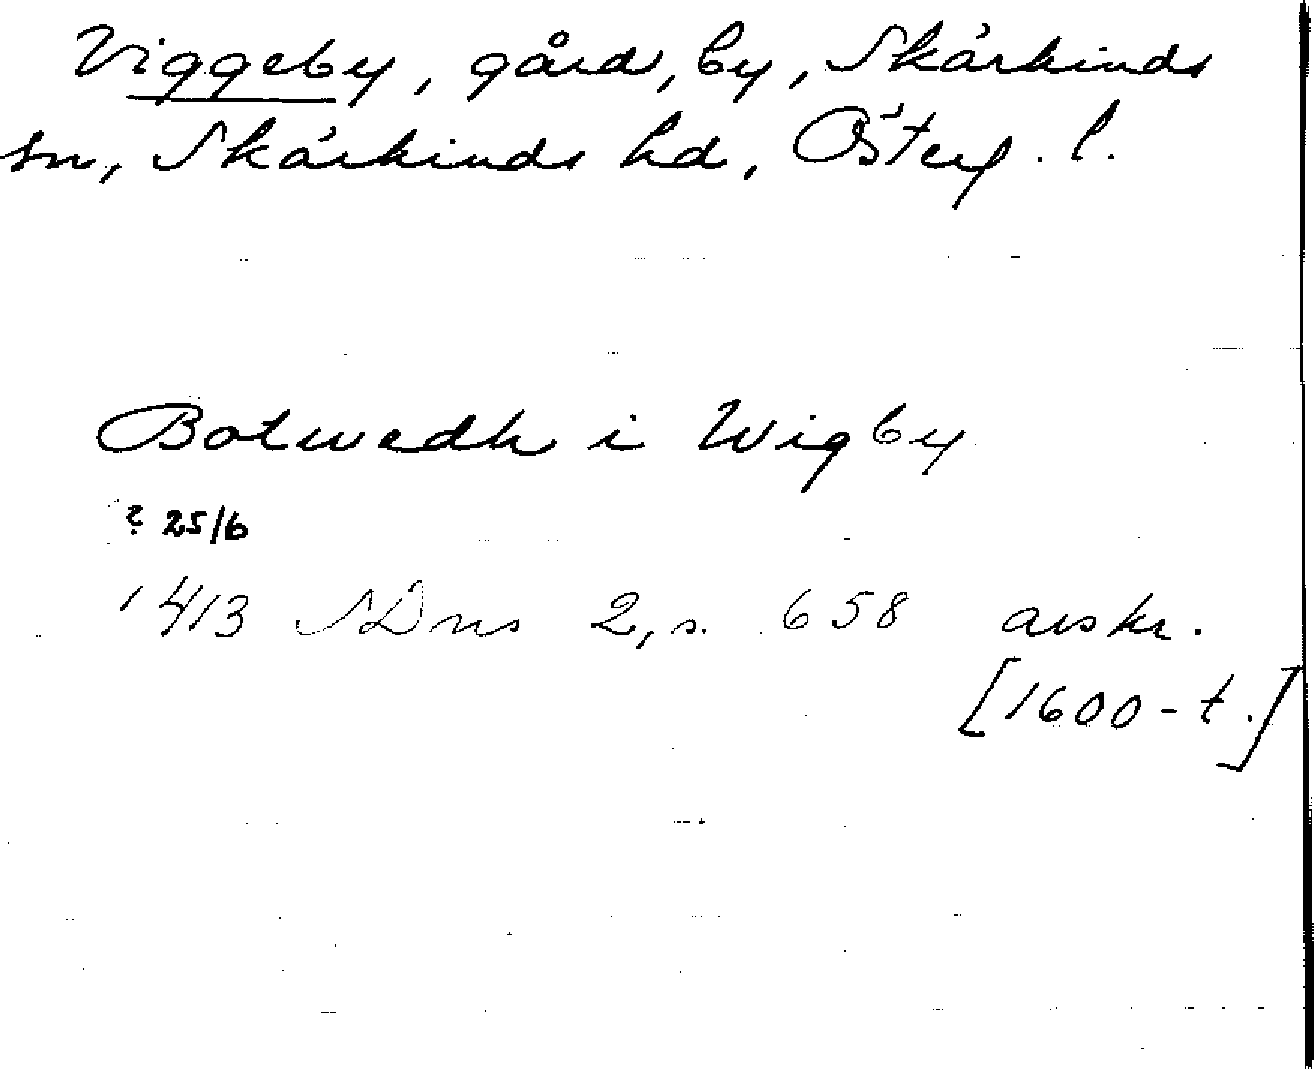 Viggeby, gård, by, Skärkinds
sn, Skärkinds hd, Österg. l.
Botwedh i Wigby
? 25/6
1413 SDns 2, s. 658 avskr.
[1600-t.]